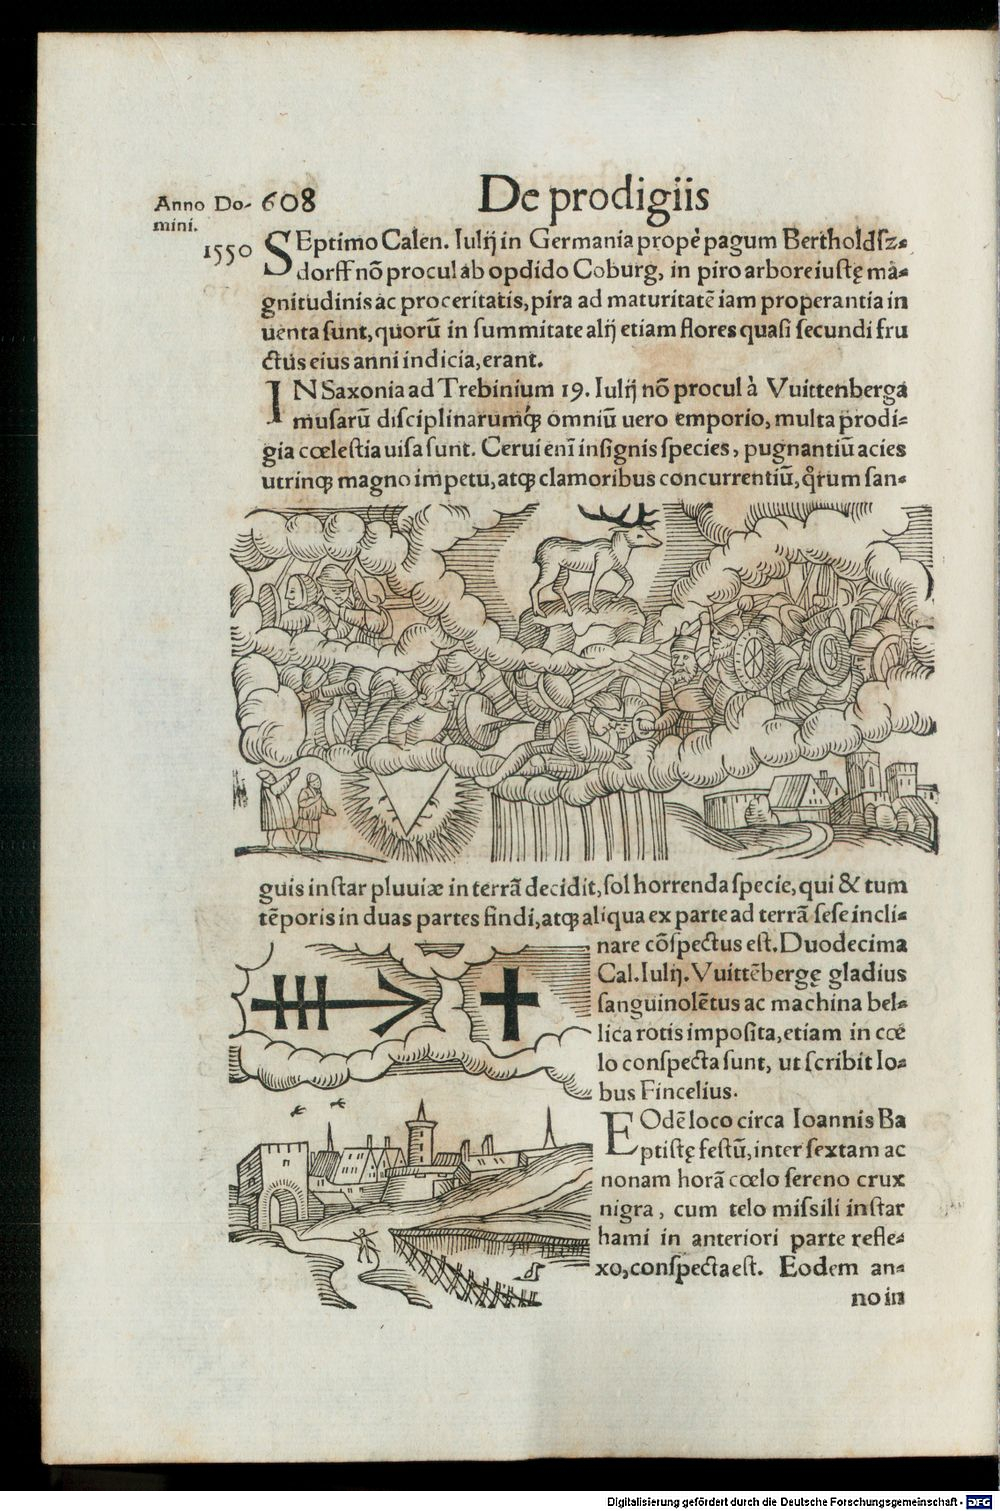 Anno Do- 608 De prodigiis
mini.
1550 SEptimo Calen. Iulij in Germania propè pagum Bertholdſz⸗
dorff nõ procul ab opdido Coburg, in piro arbore iuſtę ma⸗
gnitudinis ac proceritatis, pira ad maturitatẽ iam properantia in
uenta ſunt, quorũ in ſummitate alij etiam flores quaſi ſecundi fru
ctus eius anni indicia, erant.
IN Saxonia ad Trebinium 19. Iulij nõ procul à Vuittenberga
muſarũ diſciplinarumq́ꝫ omniũ uero emporio, multa prodi⸗
gia cœleſtia uiſa ſunt. Cerui enĩ inſignis ſpecies, pugnantiũ acies
utrinqꝫ magno impetu, atqꝫ clamoribus concurrentiũ, q̊rum ſan⸗
guis inſtar pluuiæ in terrã decidit, ſol horrenda ſpecie, qui & tum
tẽporis in duas partes findi, atqꝫ aliqua ex parte ad terrã ſeſe incli⸗
nare cõſpectus eſt. Duodecima
Cal. Iulij. Vuittẽbergę gladius
ſanguinolẽtus ac machina bel⸗
lica rotis impoſita, etiam in cœ
lo conſpecta ſunt, ut ſcribit Io⸗
bus Fincelius.
EOdẽ loco circa Ioannis Ba
ptiſtę feſtũ, inter ſextam ac
nonam horã cœlo ſereno crux
nigra, cum telo miſsili inſtar
hami in anteriori parte refle⸗
xo, conſpecta eſt. Eodem an⸗
no in
Digitalisierung gefördert durch die Deutsche Forschungsgemeinschaft - DFG